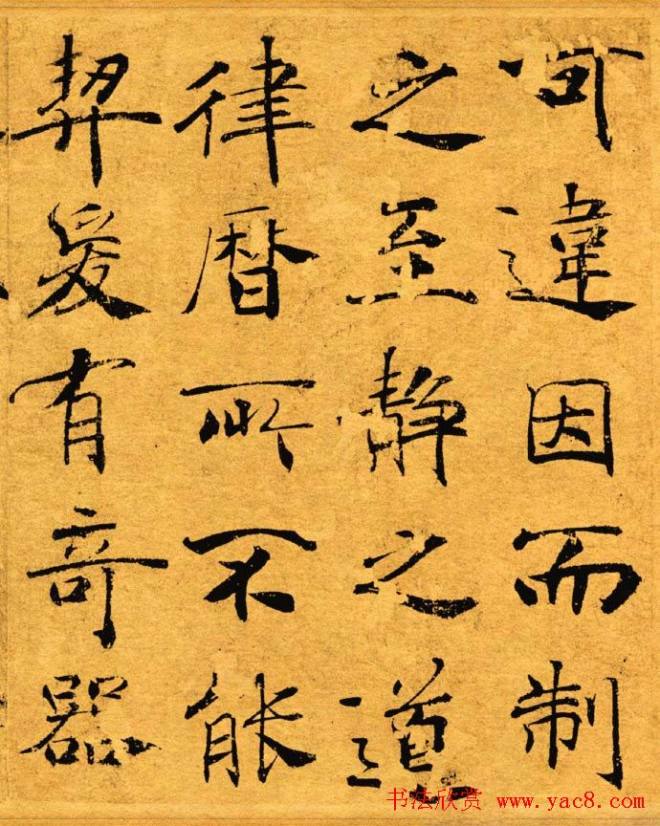 可違因而制
之至静之道
律暦所不能
契爰有奇器
书法欣赏 www.yac8.com